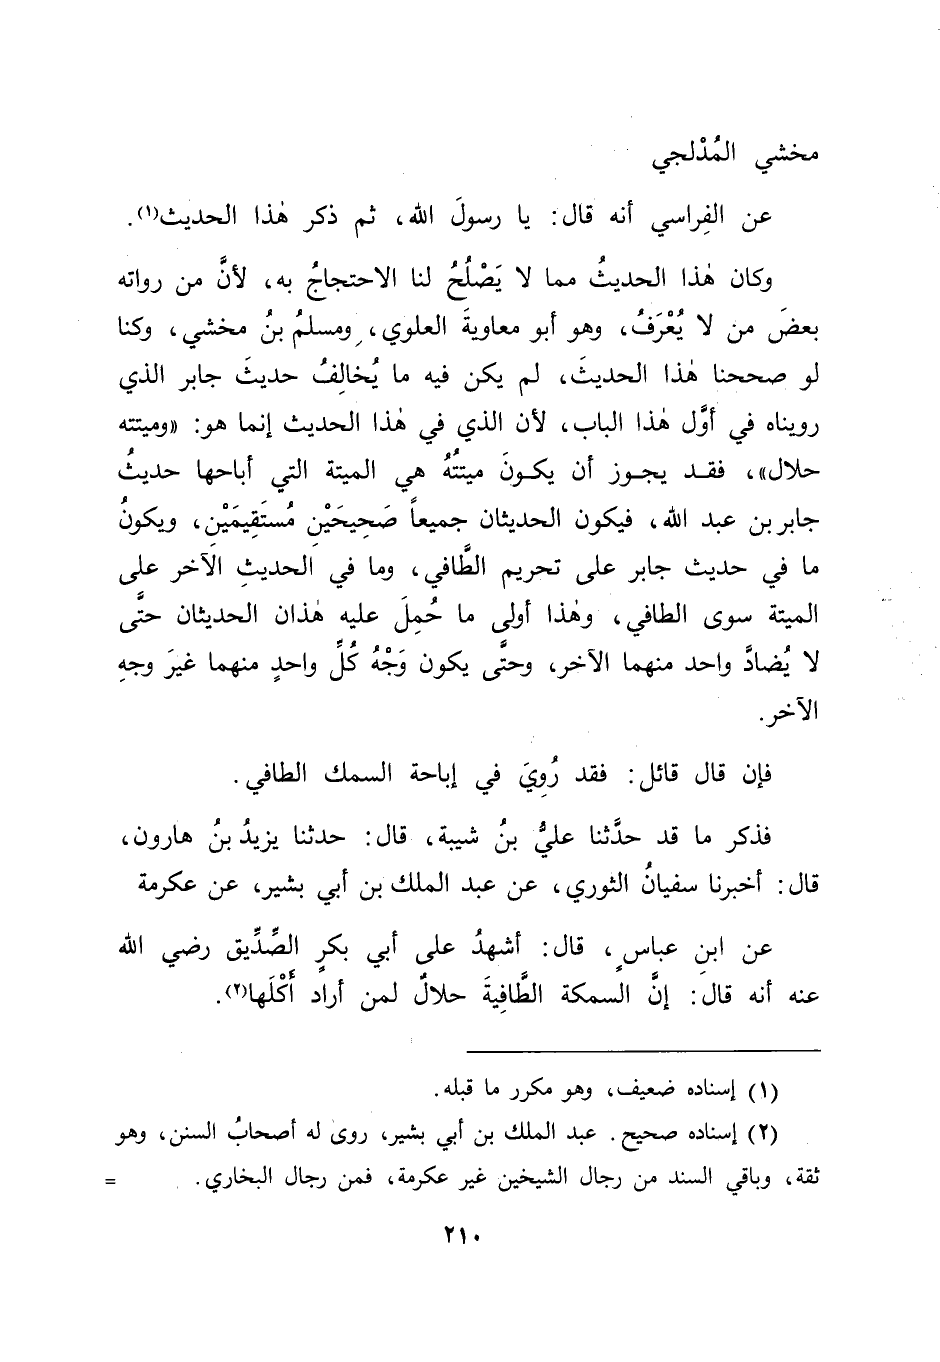 مخشي المُدْلجي
عن الفِراسي أنه قال: يا رسولَ الله، ثم ذكر هٰذا الحديث(١).
وكان هٰذا الحديثُ مما لا يَصْلُحُ لنا الاحتجاجُ به، لأنَّ من رواته
بعضَ من لا يُعْرَفُ، وهو أبو معاويةَ العلوي، ومسلمُ بنُ مخشي، وكنا
لو صححنا هٰذا الحديثَ، لم يكن فيه ما يُخالِفُ حديثَ جابر الذي
رويناه في أوَّل هٰذا الباب، لأن الذي في هٰذا الحديث إنما هو: «وميتته
حلال»، فقد يجوز أن يكونَ ميتتُهُ هي الميتة التي أباحها حديثُ
جابر بن عبد الله، فيكون الحديثان جميعاً صَحِيحَيْنِ مُستَقِيمَيْنِ، ويكونُ
ما في حديث جابر على تحريم الطَّافي، وما في الحديثِ الآخر على
الميتة سوى الطافي، وهٰذا أولى ما حُمِلَ عليه هٰذان الحديثان حتَّى
لا يُضادَّ واحد منهما الآخر، وحتَّى يكون وَجْهُ كُلِّ واحدٍ منهما غيرَ وجهِ
الآخر.
فإن قال قائل: فقد رُوِيَ في إباحة السمك الطافي.
فذكر ما قد حدَّثنا عليُّ بنُ شيبة، قال: حدثنا يزيدُ بنُ هارون،
قال: أخبرنا سفيانُ الثوري، عن عبد الملك بن أبي بشير، عن عكرمة
عن ابنِ عباسٍ، قال: أشهدُ على أبي بكرٍ الصِّدِّيق رضي الله
عنه أنه قال: إنَّ السمكة الطَّافِيةَ حلالٌ لمن أراد أَكْلَها(٢).
(١) إسناده ضعيف، وهو مكرر ما قبله.
(٢) إسناده صحيح. عبد الملك بن أبي بشير، روى له أصحابُ السنن، وهو
ثقة، وباقي السند من رجال الشيخين غير عكرمة، فمن رجال البخاري. =
٢١٠